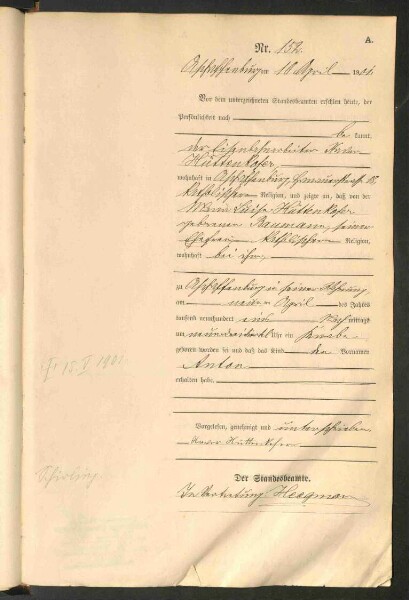 A.
Nr. 152.
Aschaffenburg am 10 April 1901.
Vor dem unterzeichneten Standesbeamten erschien heute, der
Persönlichkeit nach
be kannt,
der Eisenbahnarbeiter
Hüttenhofer
wohnhaft in Aschaffenburg,
katholischer Religion, und zeigte an, daß von der
Luise Hüttenhofer
geborenen Naumann, seiner
Ehefrau, katholischer Religion,
wohnhaft bei ihm,
zu Aschaffenburg in seiner Wohnung
am neunten April des Jahres
tausend neunhundert eins Nach mittags
um Uhr ein Knabe
geboren worden sei und daß das Kind den Vornamen
Anton
erhalten habe.
Vorgelesen, genehmigt und unterschrieben
Hüttenhofer
Der Standesbeamte.
In Vertretung
1901.